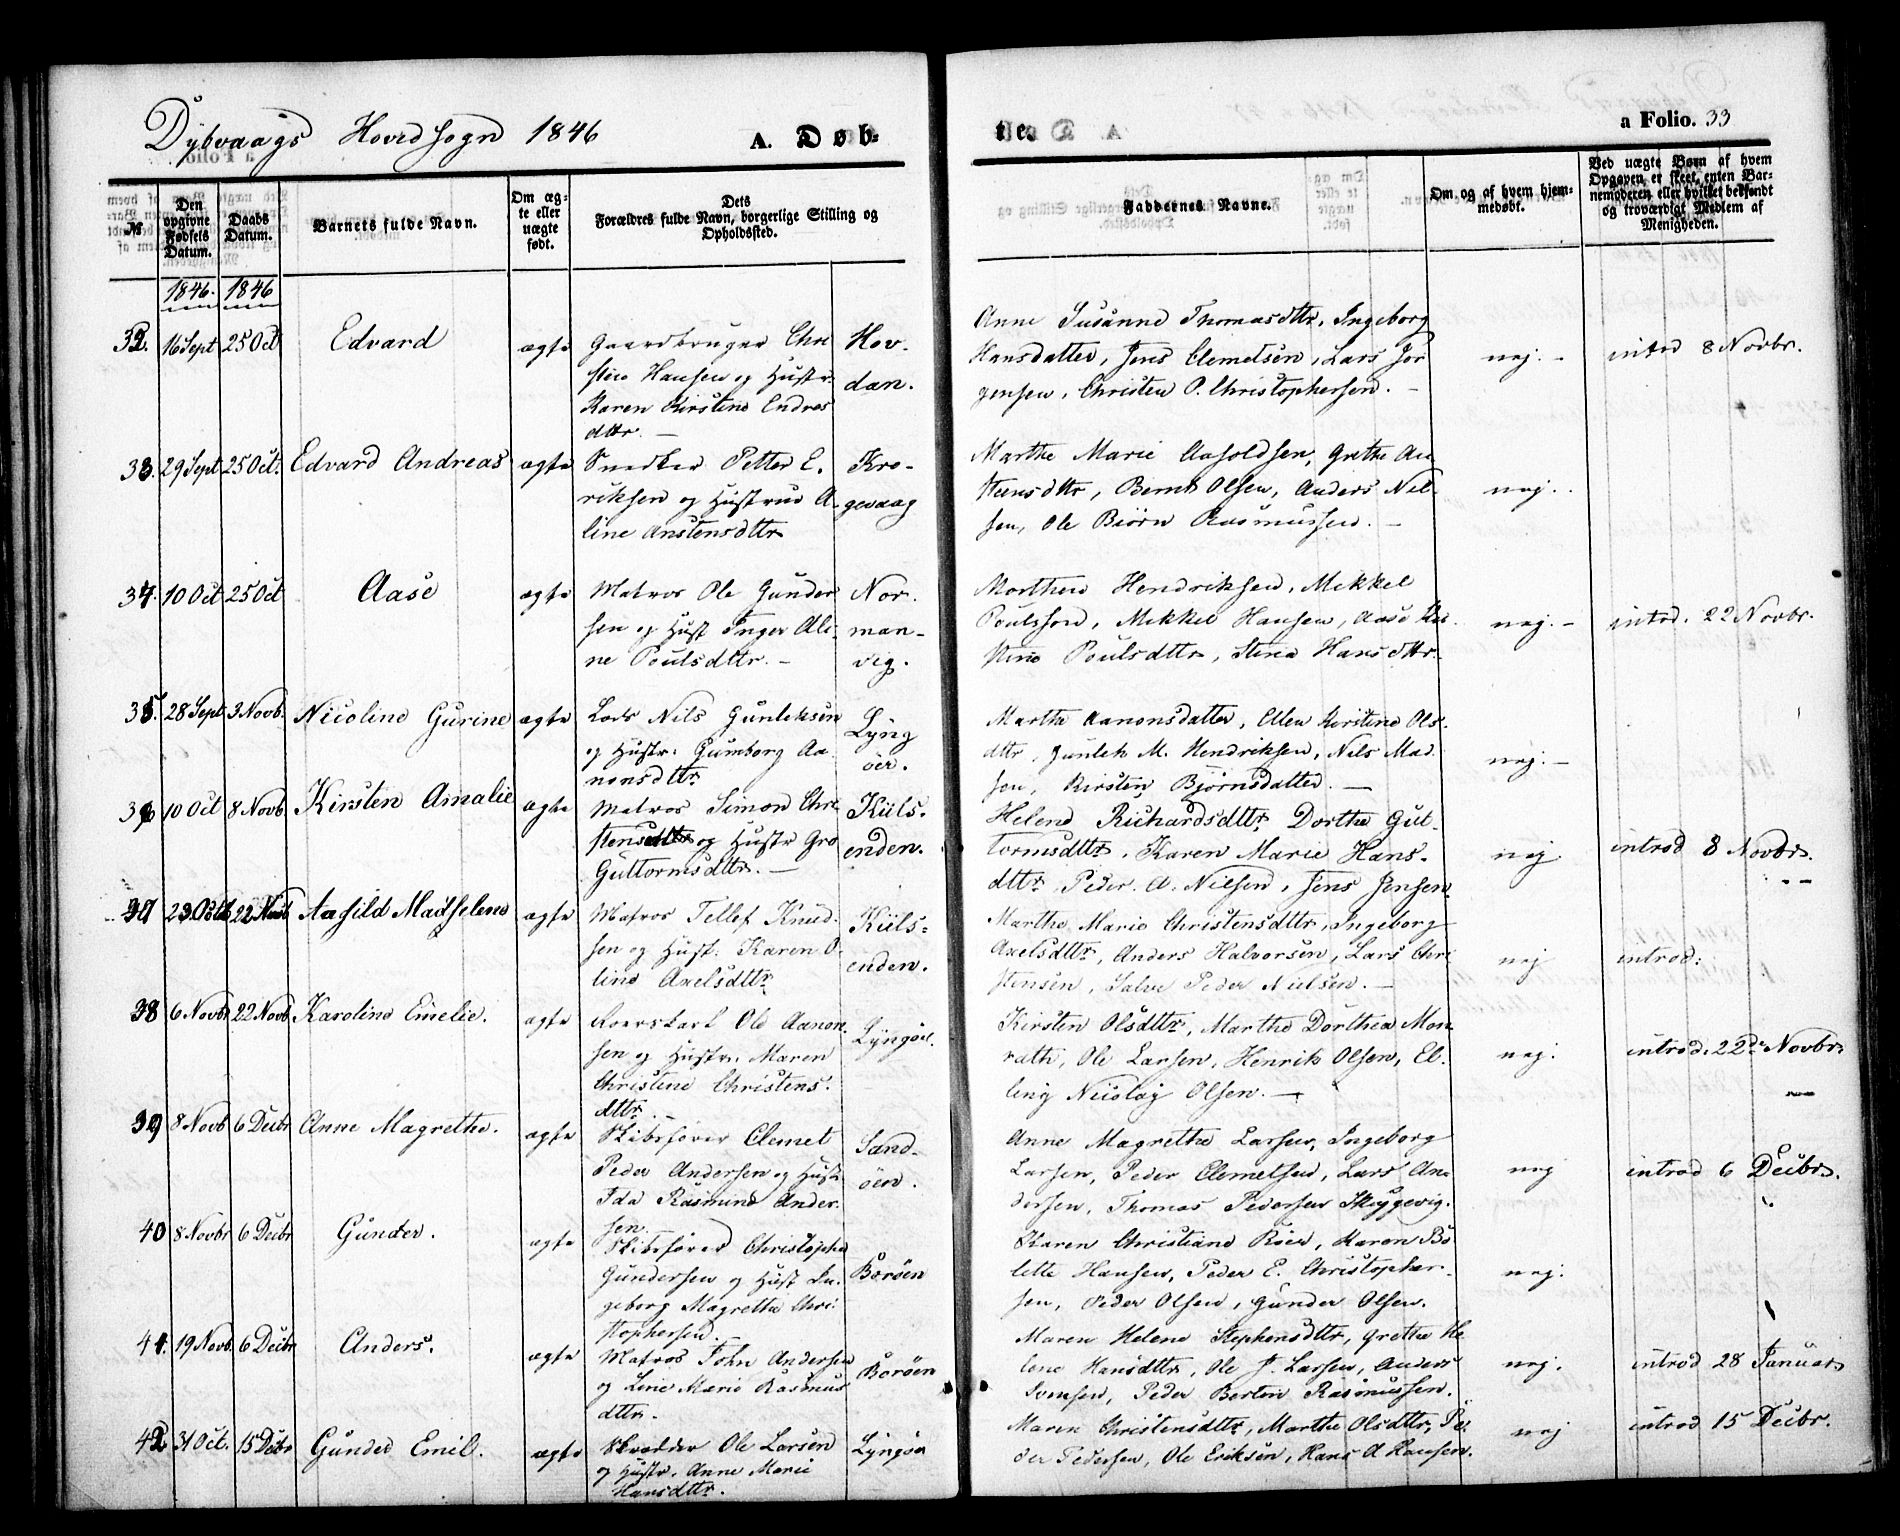 Dybvaags Hovedsogn 1846 A. Døb-
te. a Folio. 33
№
Den opgivne Fødsels Datum.
Daabs Datum.
Barnets fulde Navn.
Om ægte eller uægte født.
Dets Forældres fulde Navn, borgerlige Stilling og Opholdssted.
Faddernes Navne.
Om og af hvem hjemmedøbt.
Ved uægte Børn af hvem Opgaven er skeet, enten Barnemoderen eller hvilket bekjendt og troværdigt Medlem af Menigheden.
1846. 1846
32. 16 Sept 25 Oct Edvard ægte
Gaardbruger Chri
sten Hansen og Hustr.
Karen Kirstine Endres
dttr. —
Hov-
dan.
Anne Susanne Thomasdttr, Ingeborg
Hansdatter, Jens Clemetsen, Lars Jør
gensen, Christen P. Christophersen. —
nej. — introd 8 Novbr.
33. 29 Sept 25 Oct. Edvard Andreas ægte
Snedker Petter E.
riksen og Hustrue A-
line Anstensdttr
Kro-
gevaag
Marthe Marie Aasoldsen, Grethe An
steensdttr, Bernt Olsen, Anders Nil-
sen, Ole Biörn Rasmussen. —
nej.
34. 10 Oct 25 Oct Aase ægte
Matros Ole Gunder
sen og Hust Inger Ali-
ne Poulsdttr. —
Nor-
man-
vig.
Morthen Hendriksen, Mekkel
Poulsson, Mekkel Hansen, Aase Kir-
stine Poulsdttr, Stina Hansdttr.
nej. — introd. 22 Novbr.
35. 28 Sept 3 Novb. Nicoline Gurine ægte
Lods Nils Gunleksen
og Hustr. Gumborg Aa-
nonsdttr
Lyng
öer.
Marthe Aanonsdatter, Ellen Kirstine Ols-
dttr, Gunleh M. Hendriksen, Nils Mad-
sen, Kirsten Bjørnsdatter. —
nej. —
36 10 Oct 8 Novb. Kirsten Amalie ægte
Matros Simon Chri
stens og Hustr Gro
Guttormsdttr. —
Kiils-
enden.
Helene Richardsdttr, Dorthe Gut-
tormsdttr, Karen Marie Hans-
dttr Peder A. Nilsen, Jens Jensen
nej introd 8 Novbr.
37 23 Oct 22 Novb Aasild Madselene ægte
Matros Tellef Knud-
sen og Hust. Karen O-
line Axelsdttr
Kiils-
enden.
Marthe Marie Christensdttr, Ingeborg
Axelsdttr, Anders Halvorsen, Lars Chri
stensen, Salve Peder Nielsen. —
nej introd.
38 6 Novbr 22 Novb. Karoline Emelie. ægte
Roerskarl Ole Aanon-
sen og Hustr. Maren
Christine Christens.
dttr. —
Lyngöe.
Kirsten Olsdttr, Marthe Dorthea Mon
rath, Ole Larsen, Henrik Olsen, El-
ling Nicolay Olsen. —
nej. introd. 22de Novbr.
39 8 Novb 6 Decbr Anne Magrethe. ægte
Skibsfører Clemet
Peder Andersen og Hust
Ida Rasmine Ander-
sen.
Sand-
öen.
Anne Magrethe Larsen, Ingeborg
Larsen, Peder Clemetsen, Lars An-
dersen, Thomas Pedersen Skyggevig.
nej introd 6 Decbr.
40 8 Novbr 6 Decbr Gunder. ægte
Skibsfører Christopher
Gundersen og Hust In-
geborg Magrethe Chri-
stophersen.
Boröen
Karen Christiane Roer, Karen Bo
lette Hansen, Peder E. Christopher-
sen, Peder Olsen, Gunder Olsen.
nej.
41. 19 Novb. 6 Decbr Anders. ægte
Matros John Andersen
og Lene Marie Rasmus
dttr.
Boröen
Maren Helene Stephensdttr, Grethe He-
lene Hansdttr, Ole J. Larsen, Anders
Svensen, Peder Berten Rasmussen.
nej. introd 28 Januar
42 31 Oct. 15 Decbr Gunder Emil. ægte
Skrædder Ole Larsen
og Hustr. Anne Marie
Hansdttr.
Lyngöer
Maren Christensdttr, Marthe Olsdttr, Pe-
der Pedersen, Ole Eriksen, Hans A Hansen.
nej introd 15 Decbr.